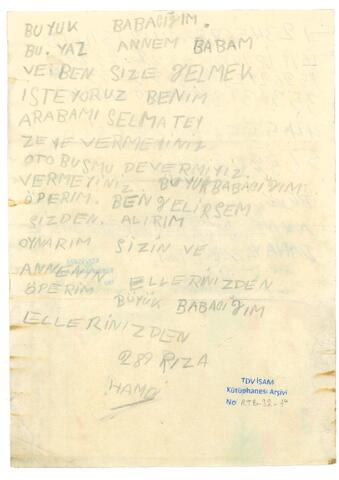 BUYUK BABACIĞIM.
BU. YAZ ANNEM BABAM
VE BEN SIZE GELMEK
ISTEYORUZ BENIM
ARABAMI SELMATEY
ZEYE VERMEYINIZ
OTOBUSMU DEVERMIYIZ.
VERMEYINIZ. BUYUKBABACIĞIM
ÖPERIM. BEN GELIRSEM
SIZDEN. ALIRIM
OYNARIM SIZIN VE
ANNEMIN ELLERINIZDEN
ÖPERIM
BÜYÜK BABACIĞIM
ELLERINIZDEN
RIZA
TDV İSAM
Kütüphanesi Arşivi
No: RTB-32-1